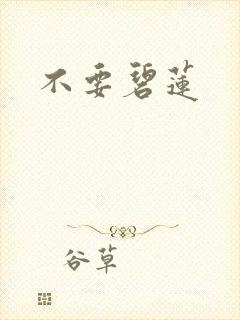 不要碧蓮
谷草